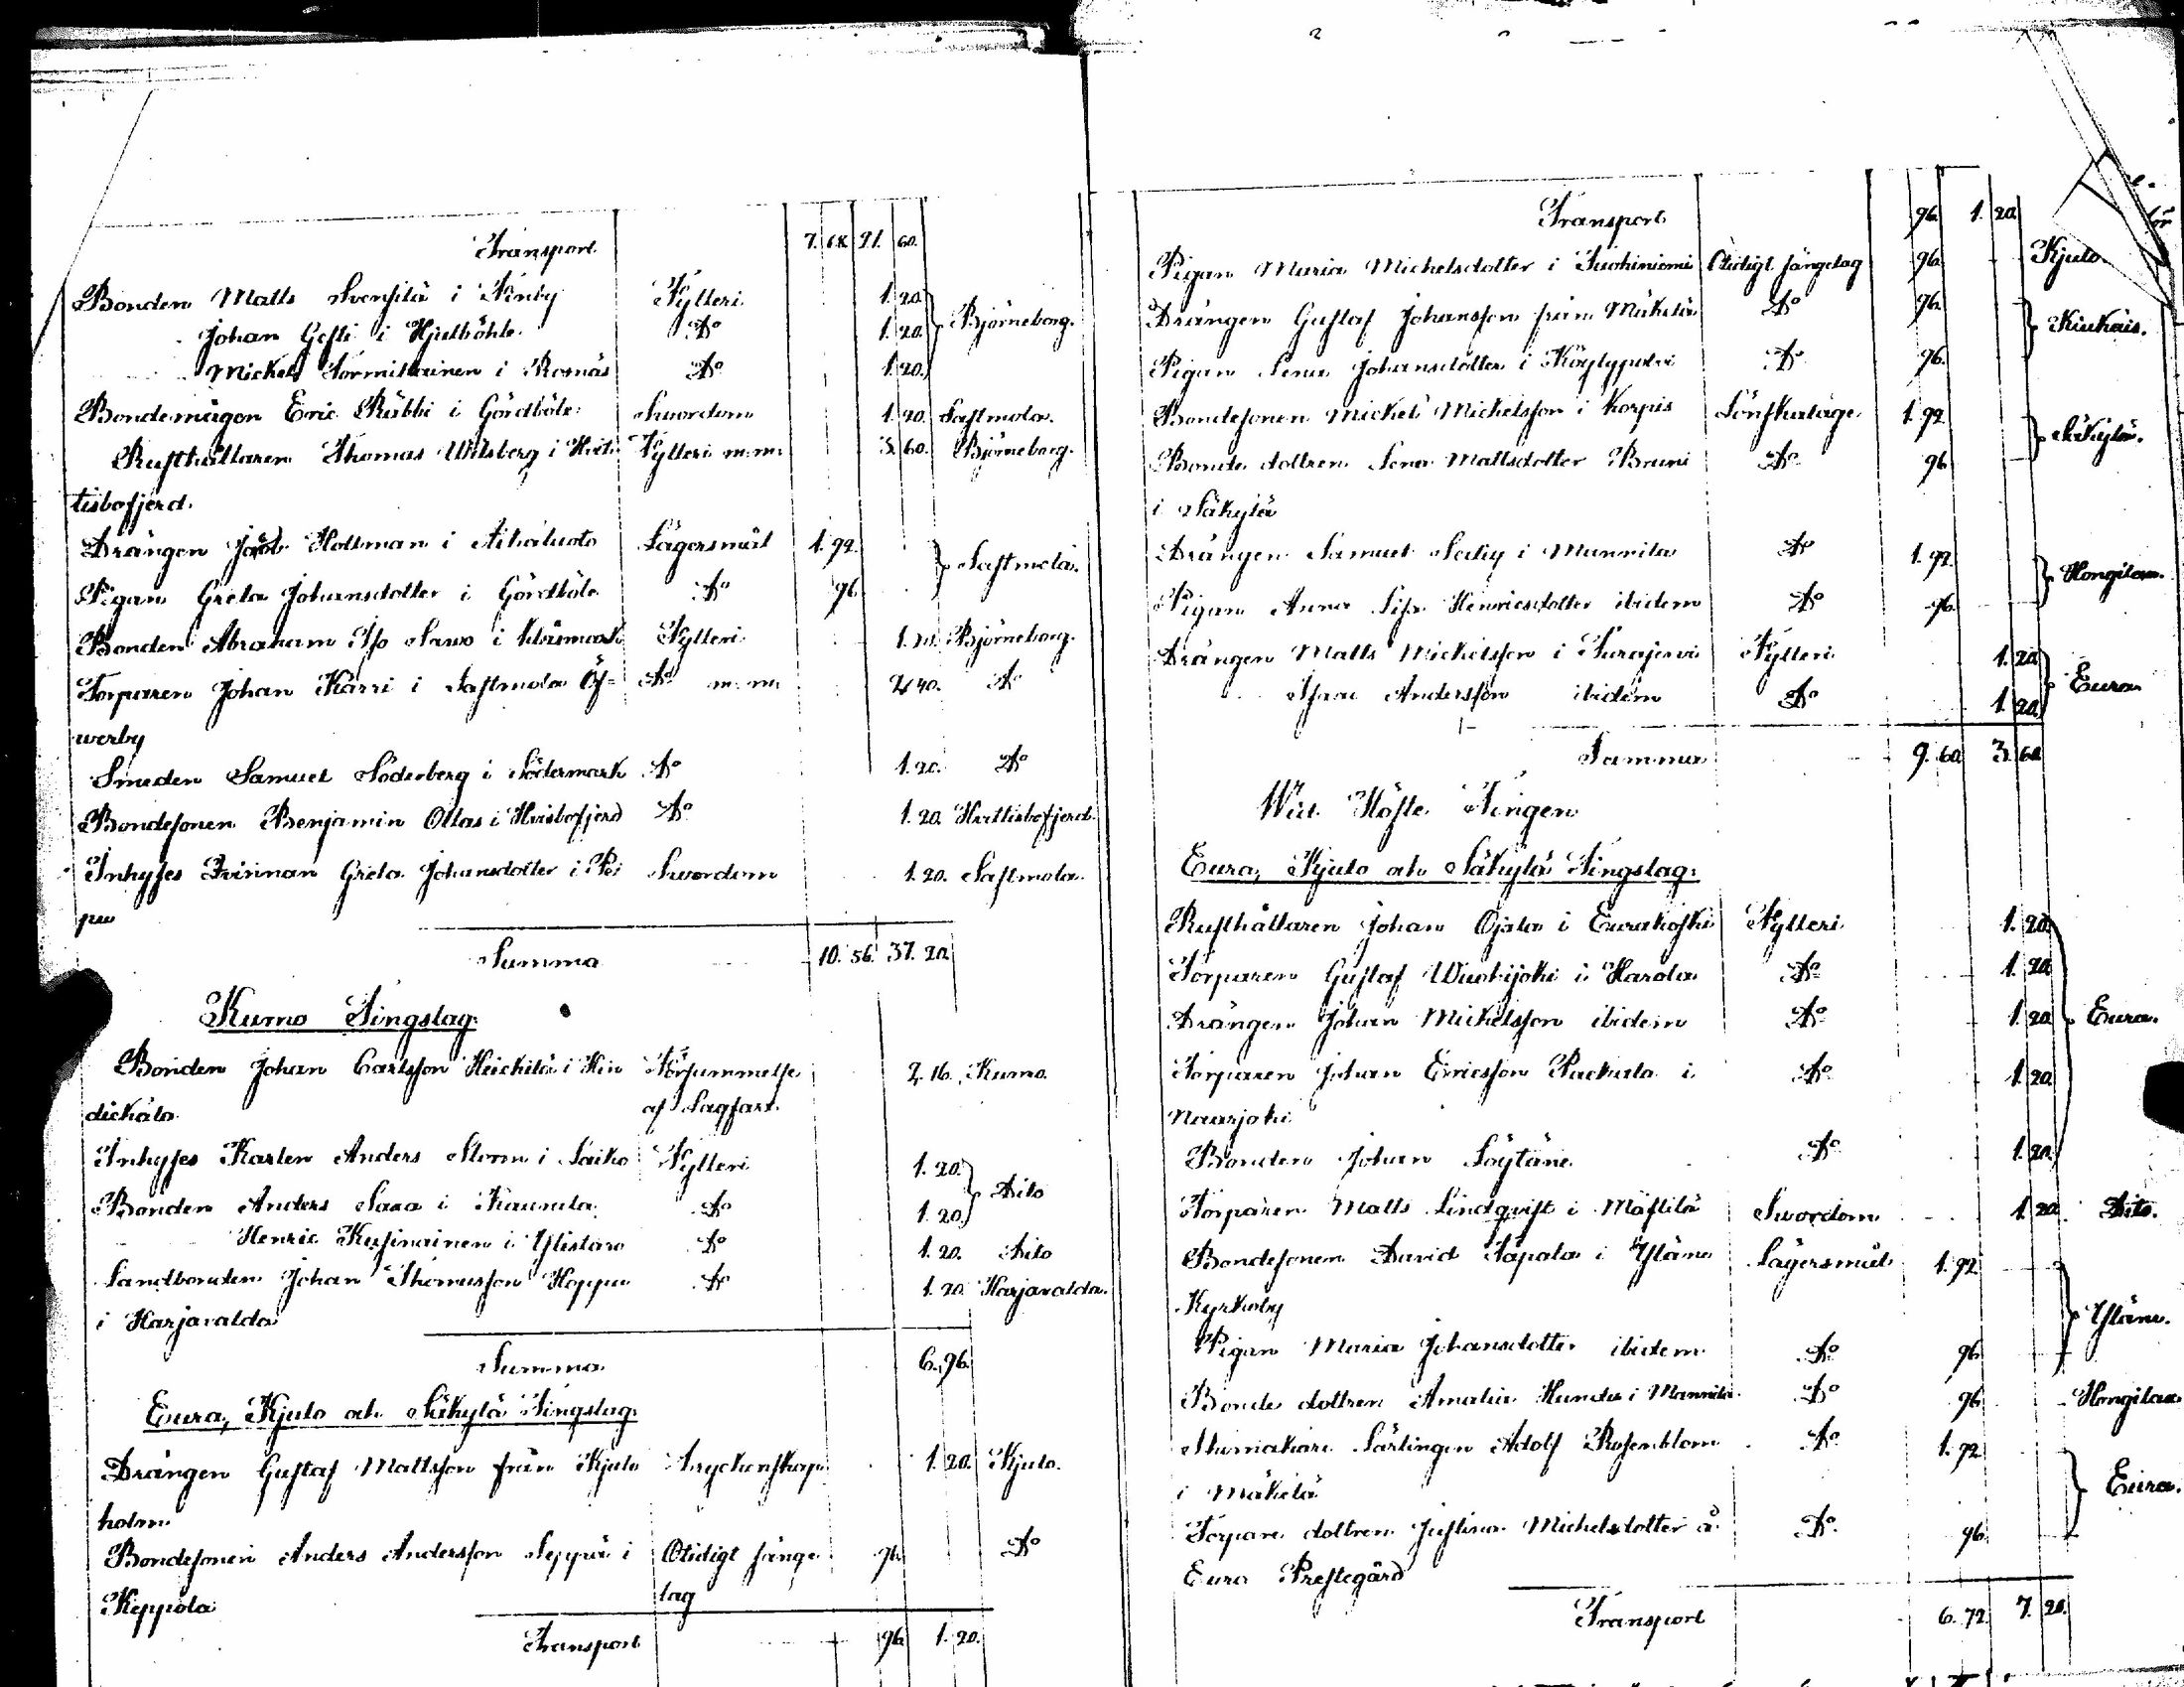 Transport 7. 68. 21. 60.
Bonden Matts Svensilä i Finby Fylleri 1. 20.
Johan Gesti i Hjulböhle Do 1. 20. Björneborg.
Mickel Tormilainen i Rosnäs Do 1. 20.
Bondemågen Eric Räbbi i Gårdböle Swordom 1. 20. Sastmola.
Rusthållaren Thomas Uhlsberg i Hvit- Fylleri m:m: 3. 60. Björneborg.
tisbofjerd.
Drängen Jacob Hollman i Ahlaluoto Lägersmål 1. 92.
Sastmola.
Pigan Greta Johansdotter i Gårdböle Do 96
Bonden Abraham Is. Saxo i Klåsmark Fylleri 1. 20. Björneborg.
Torparen Johan Karri i Sastmola Öf- Do m:m: 2. 40. Do
werby
Smeden Samuel Söderberg i Södermark Do 1. 20. Do
Bondesonen Benjamin Ollas i Hvisbofjerd Do 1. 20. Hvittisbofjerd.
Inhyses Qvinnan Greta Johansdotter i Swordom 1. 20. Sastmola.
Summa 10. 56. 37. 20.
Kumo Tingslag.
Bonden Johan Carlsson Heickilä i Hin Försummelse 2. 16. Kumo.
dickala af Lagfart.
Inhyses Karlen Anders Storm i Laiko Fylleri 1. 20.
Dito
Bonden Anders Saxa i Kaunula Do 1. 20.
Henric Kusinainen i Ylistaro Do 1. 20. Dito
Landbonden Johan Thomasson Hoppu Do 1. 20. Harjavalda.
i Harjavalda
Summa 6. 96.
Eura, Kjulo och Säkylä Tingslag.
Drängen Gustaf Mattsson från Kjulo Dryckenskap 1. 20. Kjulo.
holm
Bondesonen Anders Andersson Seppä i Otidigt sänge 96. Do
Keppola lag
Transport 96. 1. 20.
Transport 96. 1. 20.
Pigan Maria Michelsdotter i Tuohiniemi Otidigt sängelag 96. Kjulo.
Drängen Gustaf Johansson från Mäkelä Do 96.
Kiukais.
Pigan Lena Johansdotter i Köylypolvi Do 96.
Bondesonen Mickel Michelsson i Korpis Lönskaläge 1. 92.
Säkylä.
Bonde dottren Lena Mattsdotter Bruni Do 96
i Säkylä
Drängen Samuel Sedig i Mannila Do 1. 92.
Hongilax.
Pigan Anna Lisa Henricsdotter ibidem Do 96.
Drängen Matts Michelsson i Turajervi Fylleri 1. 20.
Eura
Isaac Andersson ibidem Do 1. 20.
Summa 9. 60. 3. 60.
Wid Höste Tingen
Eura, Kjulo och Säkylä Tingslag.
Rusthållaren Johan Ojala i Eurakoski Fylleri 1. 20.
Torparen Gustaf Wuokijoki i Harola Do 1. 20.
Drängen Johan Michelsson ibidem Do 1. 20. Eura.
Torparen Johan Ericsson Packala i Do 1. 20.
Naarjoki
Bonden Johan Löytäne Do 1. 20.
Torparen Matts Lindqvist i Mästilä Swordom 1. 20. Dito.
Bondesonen David Tapala i Yläne Lägersmål 1. 92.
Kyrkoby
Yläne.
Pigan Maria Johansdotter ibidem Do 96.
Bonde dottren Amalia Hunda i Mannila Do 96. Hongilax.
Skomakare Lärlingen Adolf Rosenblom Do 1. 92
i Mäkelä
Eura.
Torpare dottren Justina Michelsdotter å Do 96.
Eura Prestegård
Transport 6. 72. 7. 20.